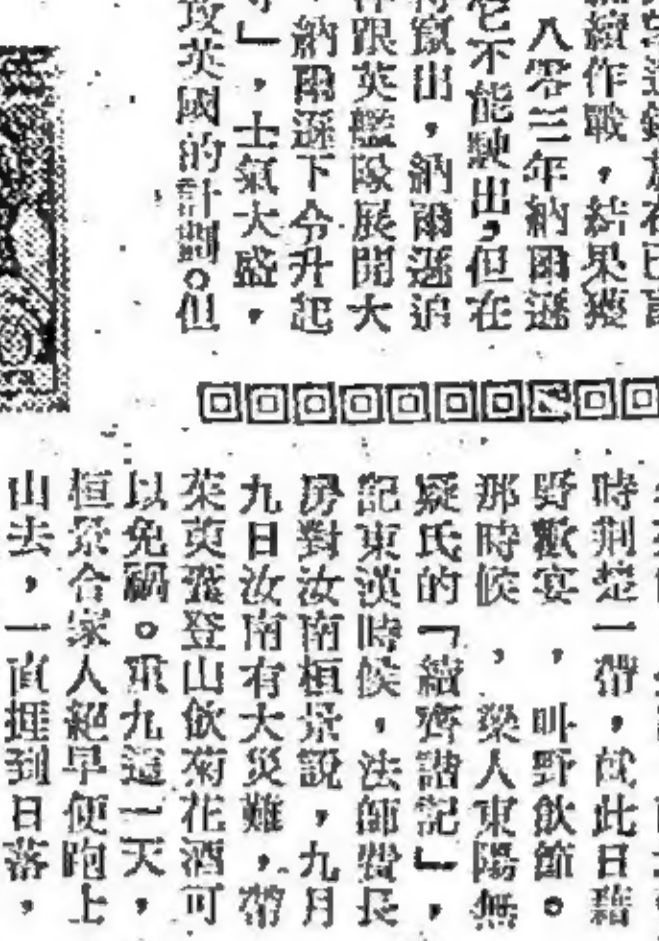 續作戰，結果獲
八零三年納爾遜
它不能駛出，但在
竄出，納爾遜追
跟英艦隊展開大
，納爾遜下令升起
」，士氣大盛，
攻英國的計劃。但
時荆楚一帶，就此日藉
野歡宴，叫野飲節。
那時候，梁人東陽無
疑氏的「續齊諧記」，
記東漢時候，法師費長
房對汝南桓景說，九月
九日汝南有大災難，帶
茱萸囊登山飲菊花酒可
以免禍。重九這一天，
桓景合家人絕早便跑上
山去，一直捱到日落，